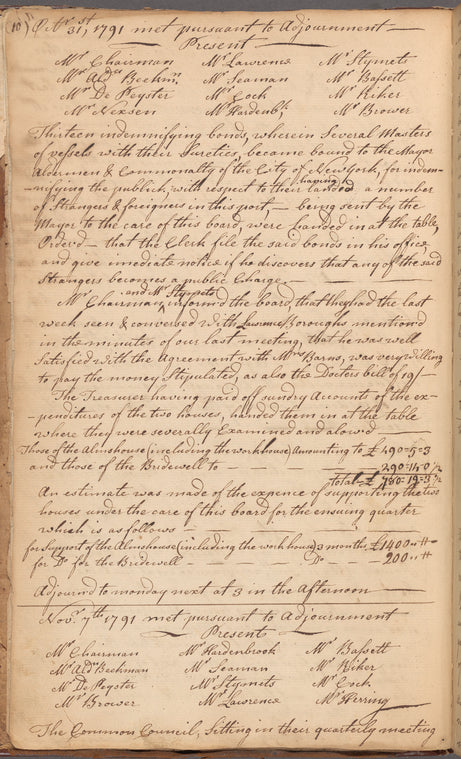 10) Octr 31st, 1791 met pursuant to Adjournment —
Present —
Mr Chairman Mr Lawrence Mr Stymets
Mr Aldn Beekmn Mr Seaman Mr Bassett
Mr De Peyster Mr Cock Mr Riker
Mr Nexsen Mr Hardenbk Mr Brower
Thirteen indemnifying bonds, wherein Several Masters
of vessels with their Sureties, became bound to the Mayor
Aldermen & Commonalty of the City of Newyork, for indem-
-nifying the publick, with respect to their having landed a number
of Strangers & foreigners in this port, — being sent by the
Mayor to the care of this board, were handed in at the table,
Orderd — that the Clerk file the said bonds in his office
and give imediate notice if he discovers that any of the said
Strangers becomes a public Charge —
Mr Chairman and Mr Stymets inform'd the board, that they had the last
week seen & conversed with Lawrence Boroughs mention'd
in the minutes of our last meeting, that he was well
Satisfied with the Agreement with Mrs Barns, was very willing
to pay the money Stipulated, as also the Docters bill of 19/—
The Treasurer having paid off sundry Accounts of the ex-
penditures of the two houses, handed them in at the Table
where they were severally Examined and alowd —
Those of the Almshouse (including the workhouse) Amounting to £490=5=3
and those of the Bridewell to — — — 290=14=0 1/2
Total — £780=19=3 1/2
An estimate was made of the expence of supporting the two
houses under the care of this board for the ensuing quarter
which is as follows —
for Support of the Almshouse (including the work house) 3 months £1400 " "
for Do for the Bridewell — — Do — 200 " "
Adjournd to monday next at 3 in the Afternoon —
Novr 7th 1791 met pursuant to Adjournment
Present —
Mr Chairman Mr Hardenbrook Mr Bassett
Mr Aldn Beekman Mr Seaman Mr Riker
Mr De Peyster Mr Stymets Mr Cock
Mr Brower Mr Lawrence Mr Herring
The Common Council, Sitting in their quarterly meeting